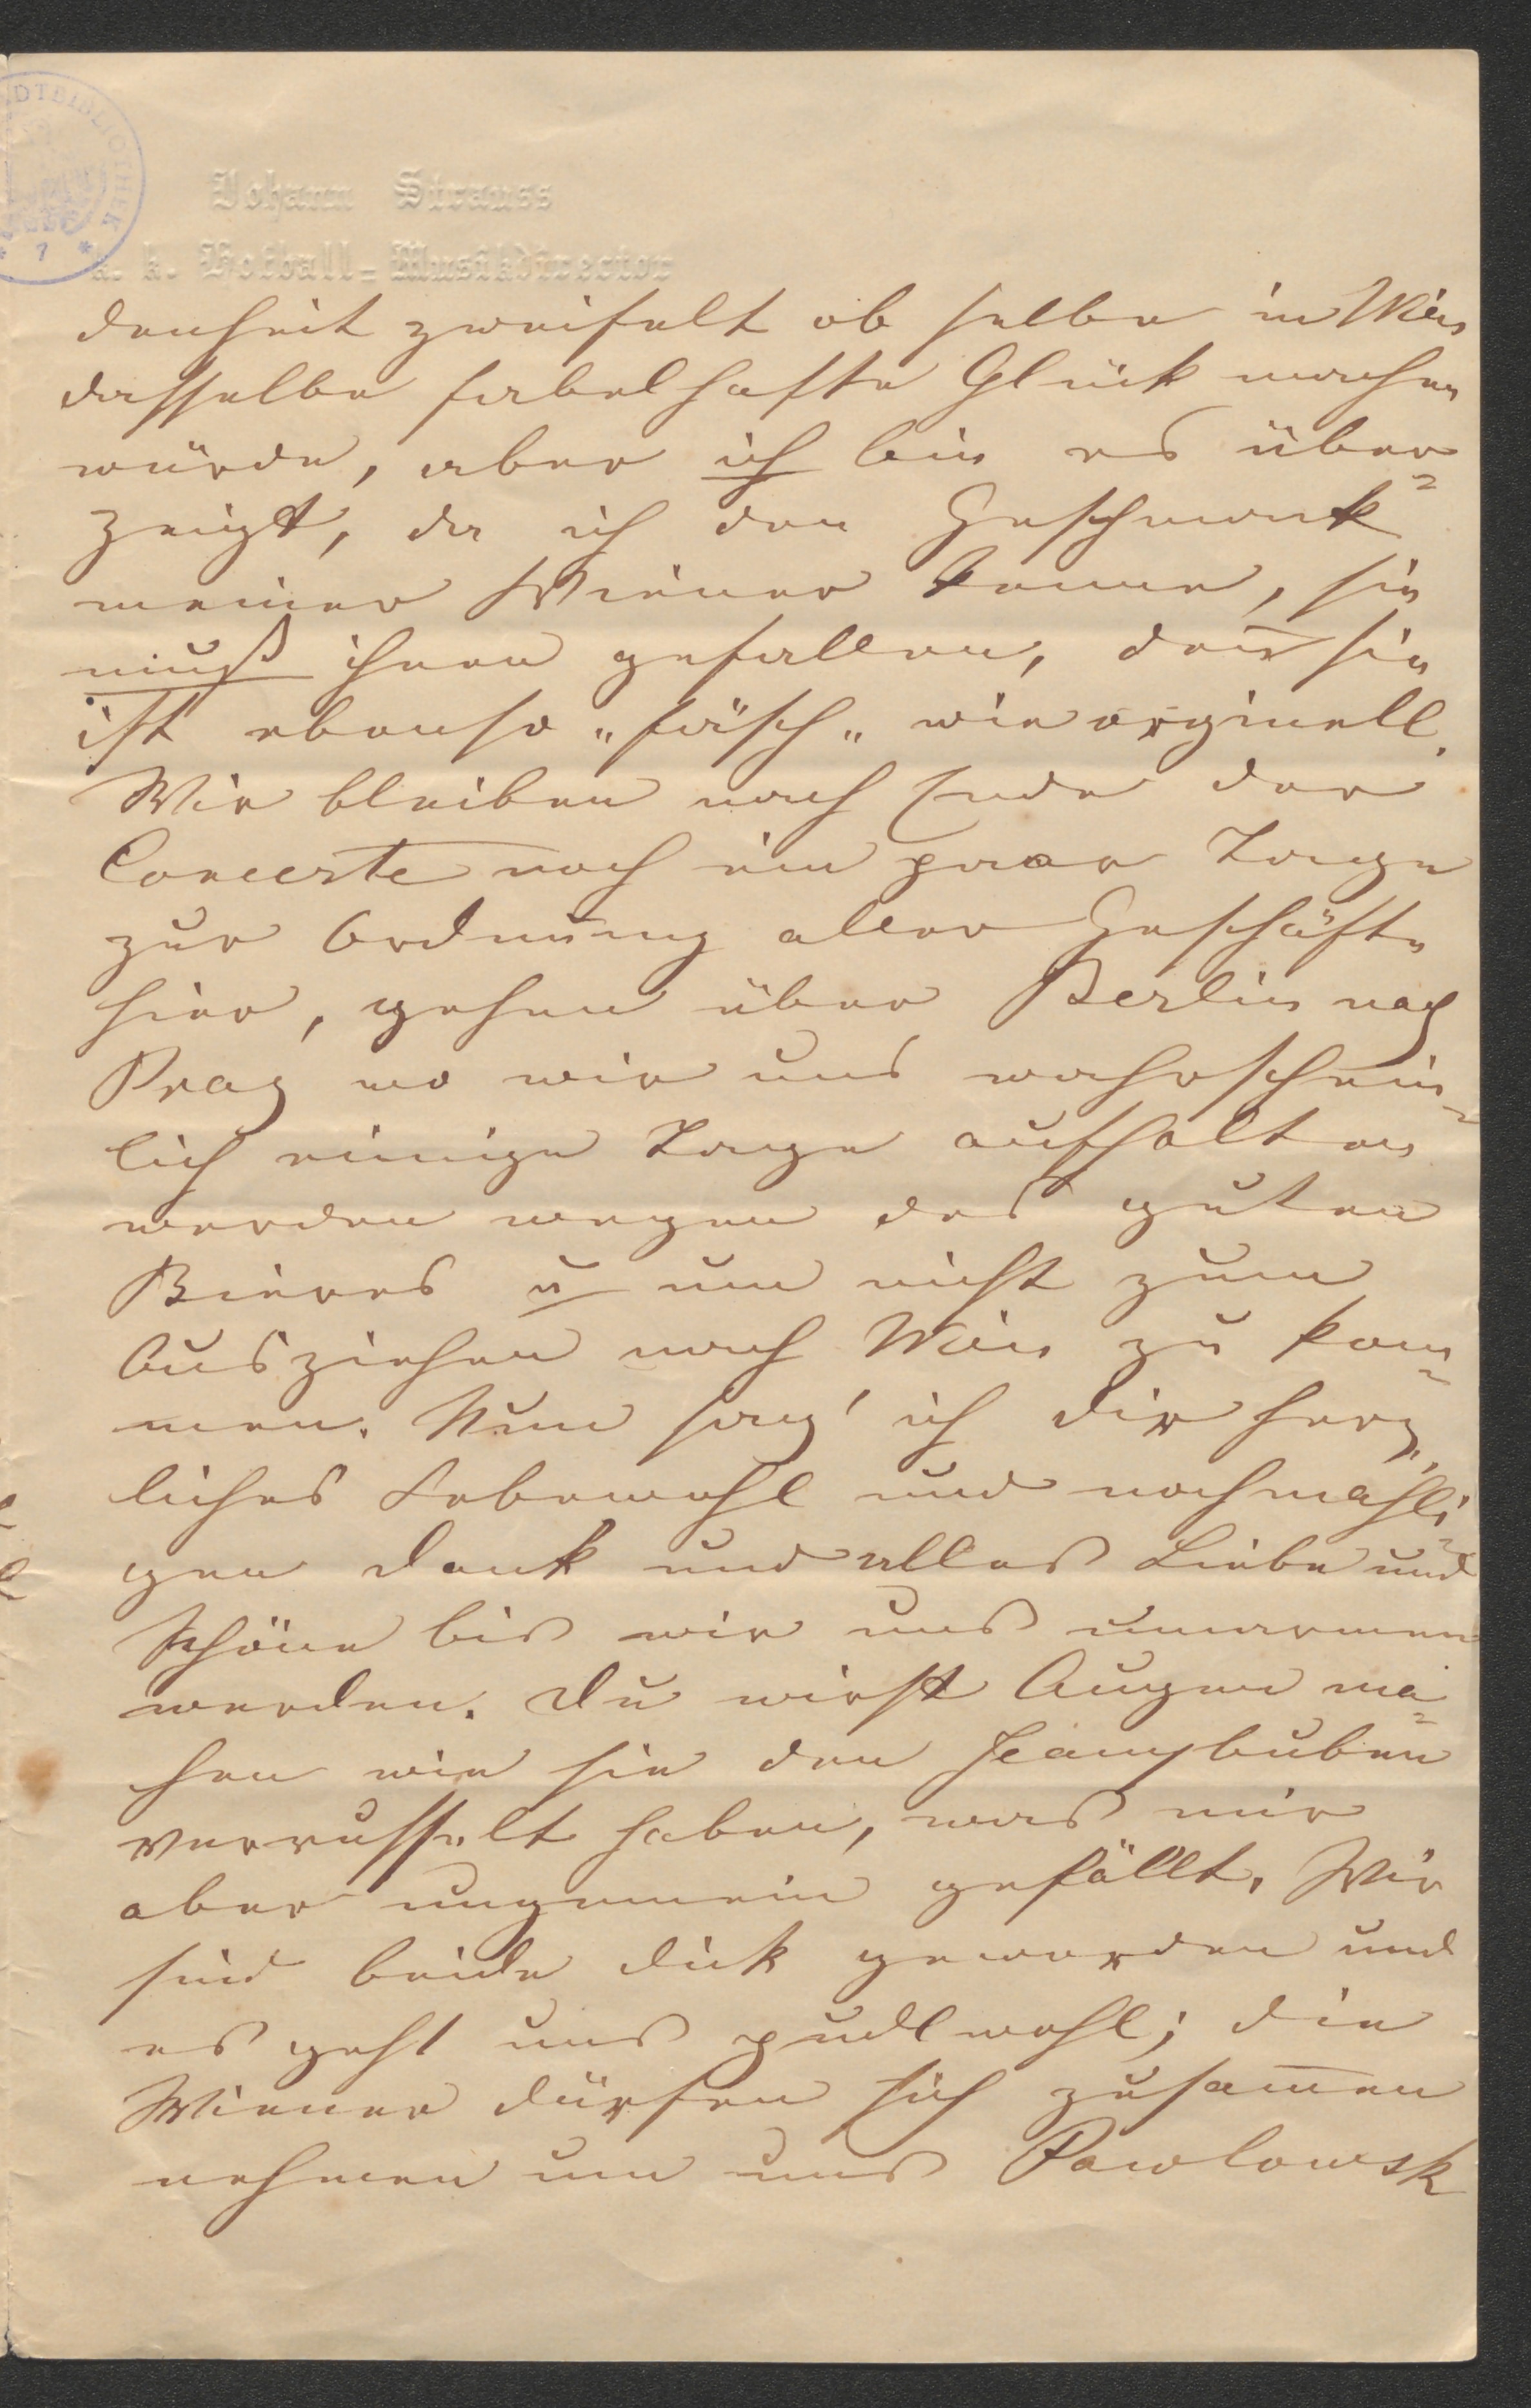 DTBIBLIOTHEK
* 7 *
Johann Strauss
k. k. Hofball-Musikdirector
denheit zweifelt ob selbe in Wien
dasselbe fabelhafte Glück machen
würde, aber ich bin es über-
zeugt, da ich den Geschmack
meiner Wiener kenne, sie
muß ihnen gefallen, den̄ sie
ist ebenso „fäsch„ wie orginell.
Wir bleiben nach Ende der
Concerte noch ein paar Tage
zur Ordnung aller Geschäfte
hier, gehen über Berlin nach
Prag wo wir uns wahrschein-
lich einige Tage aufhalten
werden wegen des guten
Bieres u um nicht zum
Ausziehen nach Wien zu kom-
men. Nun sag' ich dir herz-
liches Lebewohl und nochmahli-
gen Dank und alles Liebe und
Schöne bis wir uns umarmen
werden. Du wirst Augen ma-
chen wie sie den Jeanybuben
verrusselt haben, was mir
aber ungemein gefällt. Wir
sind beide dick geworden und
es geht uns pudlwohl; die
Wiener dürfen sich zusam̄en
nehmen um uns Pawlowsk